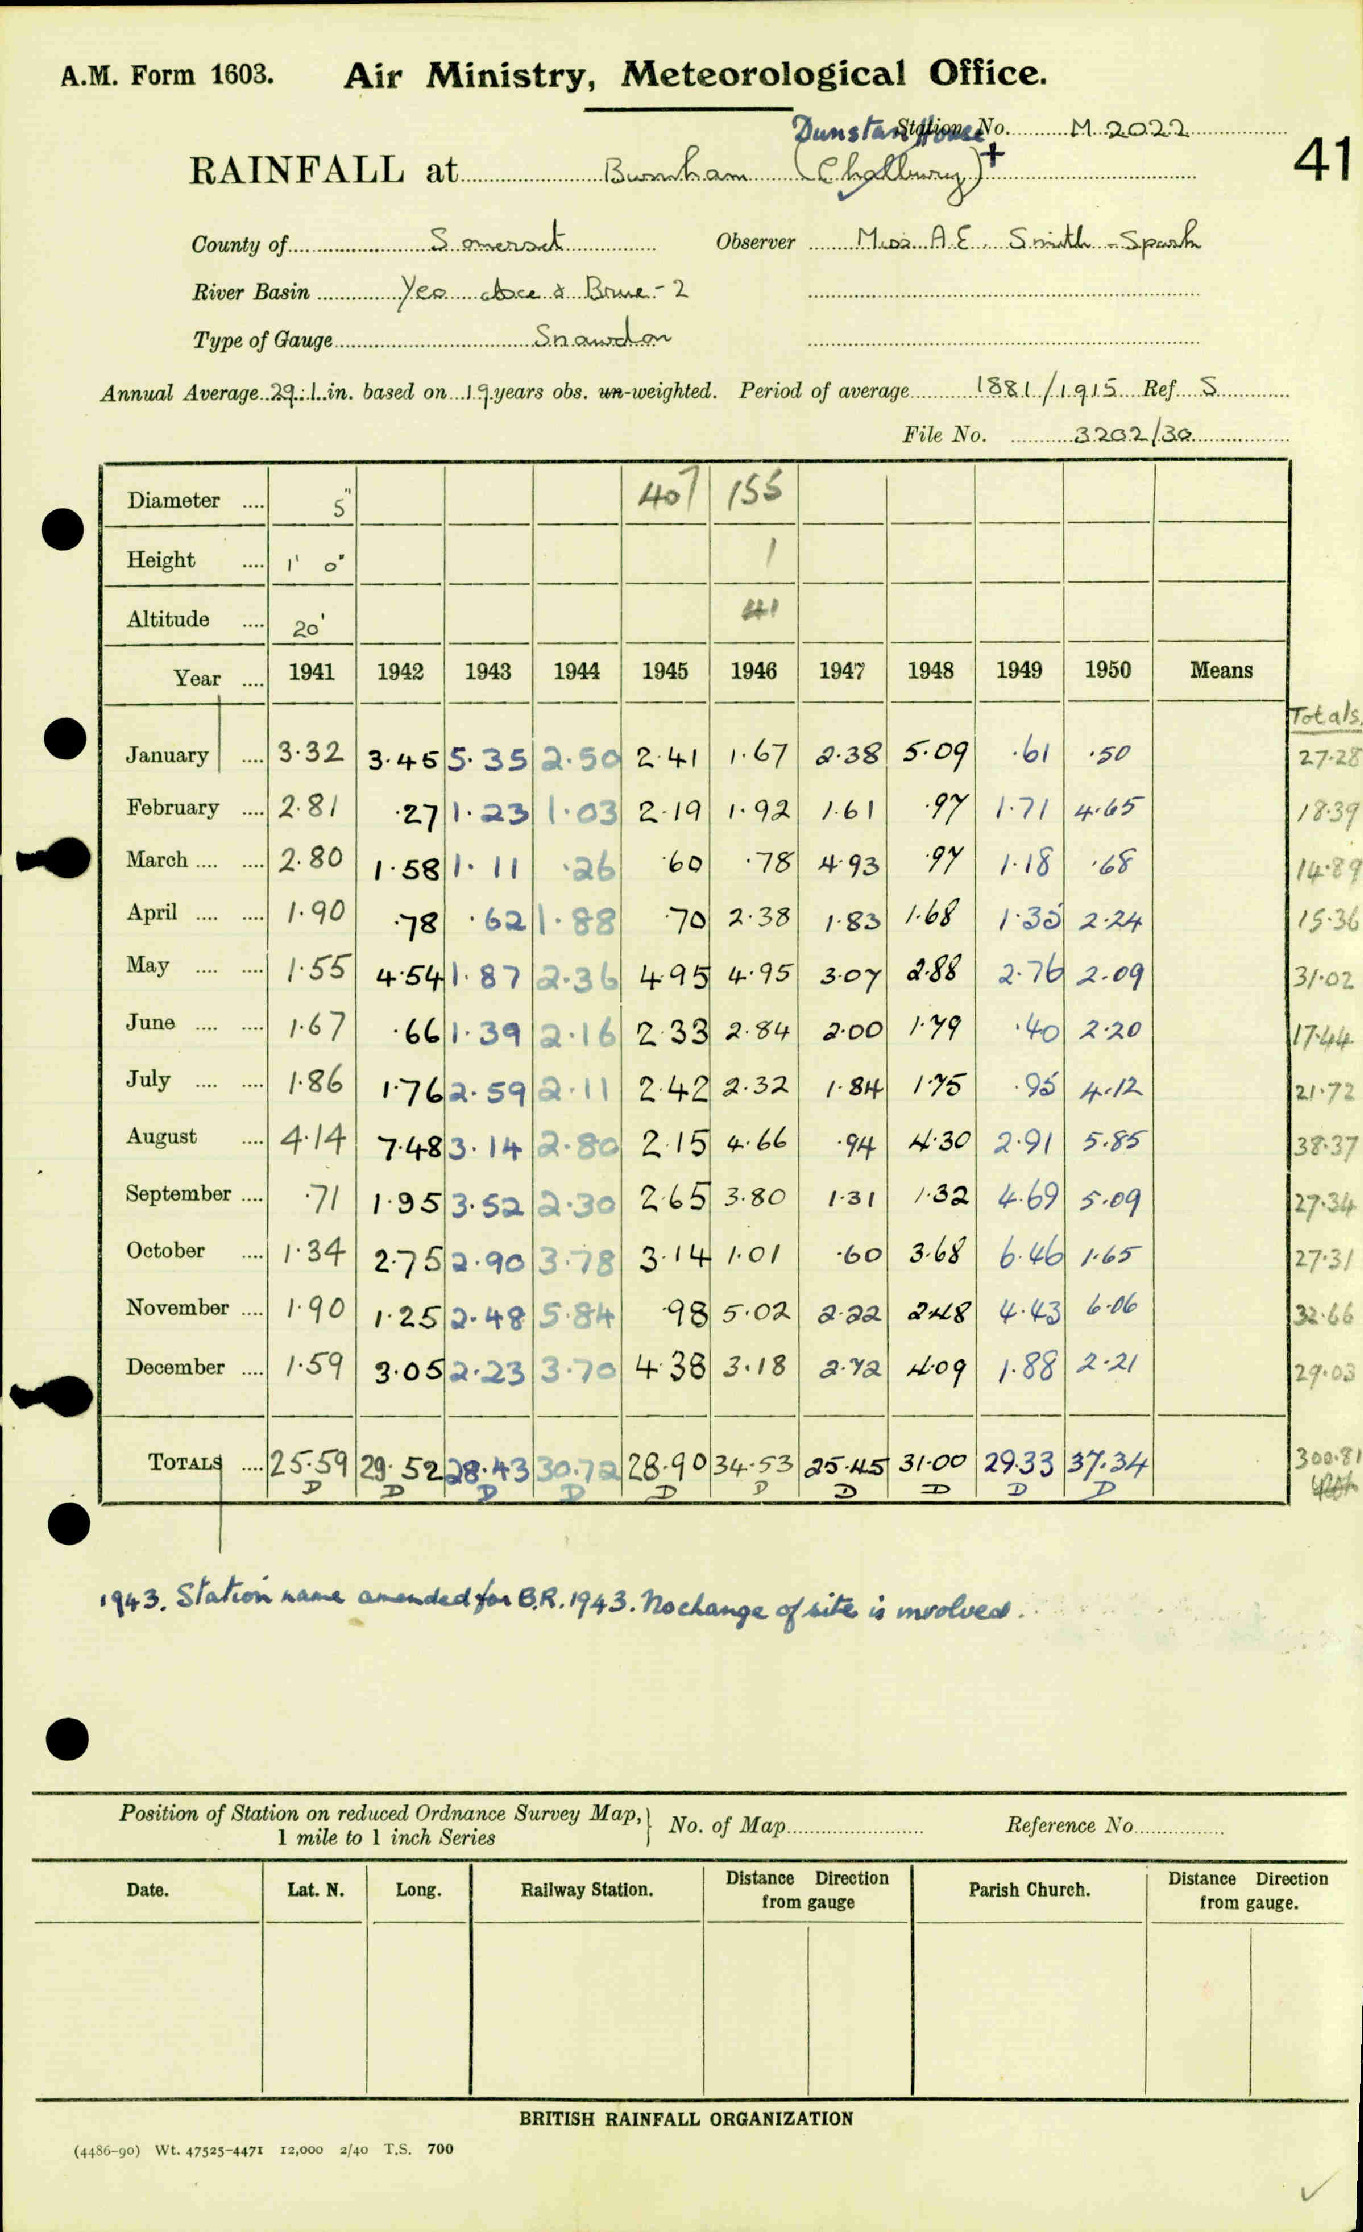 A.M. Form 1603. Air Ministry, Meteorological Office.
Dunstan House Station No. M 2022
RAINFALL at Burnham (Chalbury) +
41
County of Somerset Observer Miss A.E. Smith-Spark
River Basin Yeo Axe & Brue - 2
Type of Gauge Snowdon
Annual Average 29.1 in. based on 19 years obs. un-weighted. Period of average 1881/1915 Ref. S
File No. 3202/30
Diameter .... 5" 407 155
Height .... 1' 0" 1
Altitude .... 20' 41
Year .... 1941 1942 1943 1944 1945 1946 1947 1948 1949 1950 Means Totals
January .... 3.32 3.45 5.35 2.50 2.41 1.67 2.38 5.09 .61 .50 27.28
February .... 2.81 .27 1.23 1.03 2.19 1.92 1.61 .97 1.71 4.65 18.39
March .... .... 2.80 1.58 1.11 .26 .60 .78 4.93 .97 1.18 .68 14.89
April .... .... 1.90 .78 .62 1.88 .70 2.38 1.83 1.68 1.35 2.24 15.36
May .... .... 1.55 4.54 1.87 2.36 4.95 4.95 3.07 2.88 2.76 2.09 31.02
June .... .... 1.67 .66 1.39 2.16 2.33 2.84 2.00 1.79 .40 2.20 17.44
July .... .... 1.86 1.76 2.59 2.11 2.42 2.32 1.84 1.75 .95 4.12 21.72
August .... 4.14 7.48 3.14 2.80 2.15 4.66 .94 4.30 2.91 5.85 38.37
September .... .71 1.95 3.52 2.30 2.65 3.80 1.31 1.32 4.69 5.09 27.34
October .... 1.34 2.75 2.90 3.78 3.14 1.01 .60 3.68 6.46 1.65 27.31
November .... 1.90 1.25 2.48 5.84 .98 5.02 2.22 2.48 4.43 6.06 32.66
December .... 1.59 3.05 2.23 3.70 4.38 3.18 2.72 4.09 1.88 2.21 29.03
TOTALS .... 25.59 29.52 28.43 30.72 28.90 34.53 25.45 31.00 29.33 37.34 300.81
D D D D D D D D D D
1943. Station name amended for B.R. 1943. No change of site is involved.
Position of Station on reduced Ordnance Survey Map, } No. of Map Reference No
1 mile to 1 inch Series
Date. Lat. N. Long. Railway Station. Distance Direction from gauge Parish Church. Distance Direction from gauge.
BRITISH RAINFALL ORGANIZATION
(4486-90) Wt. 47525-4471 12,000 2/40 T.S. 700